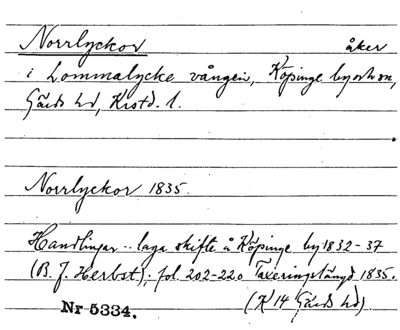 Norrlyckor åker
i Lommalycke vången, Köpinge by o sn,
Gärds hd, Kristd. l.
Norrlyckor 1835.
Handlingar .. laga skifte å Köpinge by 1832-37
(B. J. Herbst); fol. 202-220 Taxeringslängd 1835.
(K 14 Gärds hd)
Nr 5334.